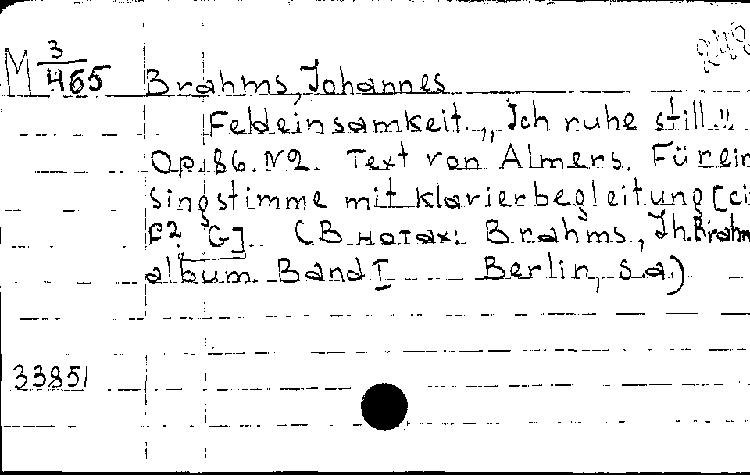 M 3/465 Brahms, Johannes
Feldeinsamkeit „Ich ruhe still"
Op. 86. N2. Text von Almers. Für ein
singstimme mit Klavierbegleitung [ci
F2 G] (В нотах: Brahms, Jh. Brahm
album Band I Berlin, s.a.)
33851